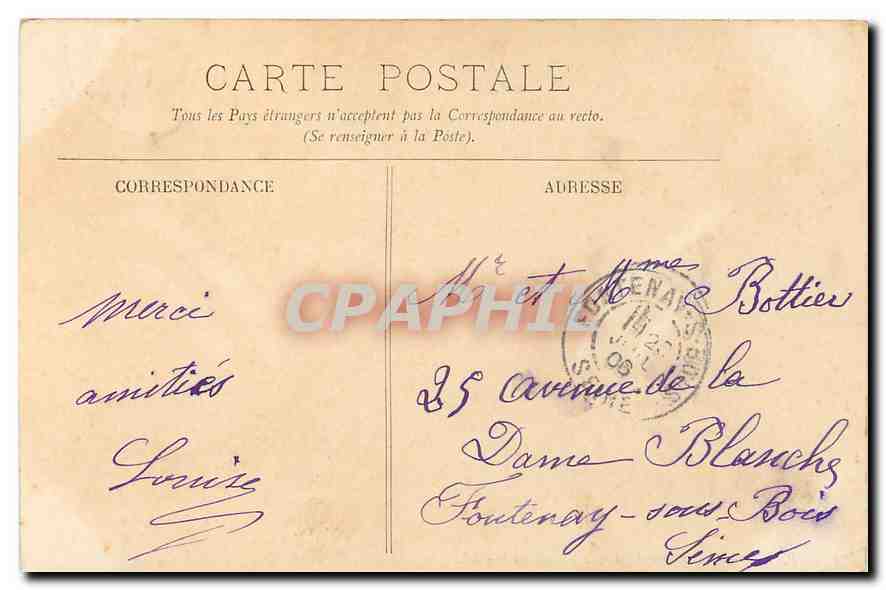 CARTE POSTALE
Tous les Pays étrangers n'acceptent pas la Correspondance au recto.
(Se renseigner à la Poste).
CORRESPONDANCE
ADRESSE
merci
amitiés
Louise
Mr et Mmes Bottier
25 avenue de la
Dame Blanche
Fontenay-sous-Bois
Seine
FONTENAY-S-BOIS
06
SEINE
CPAPHIL